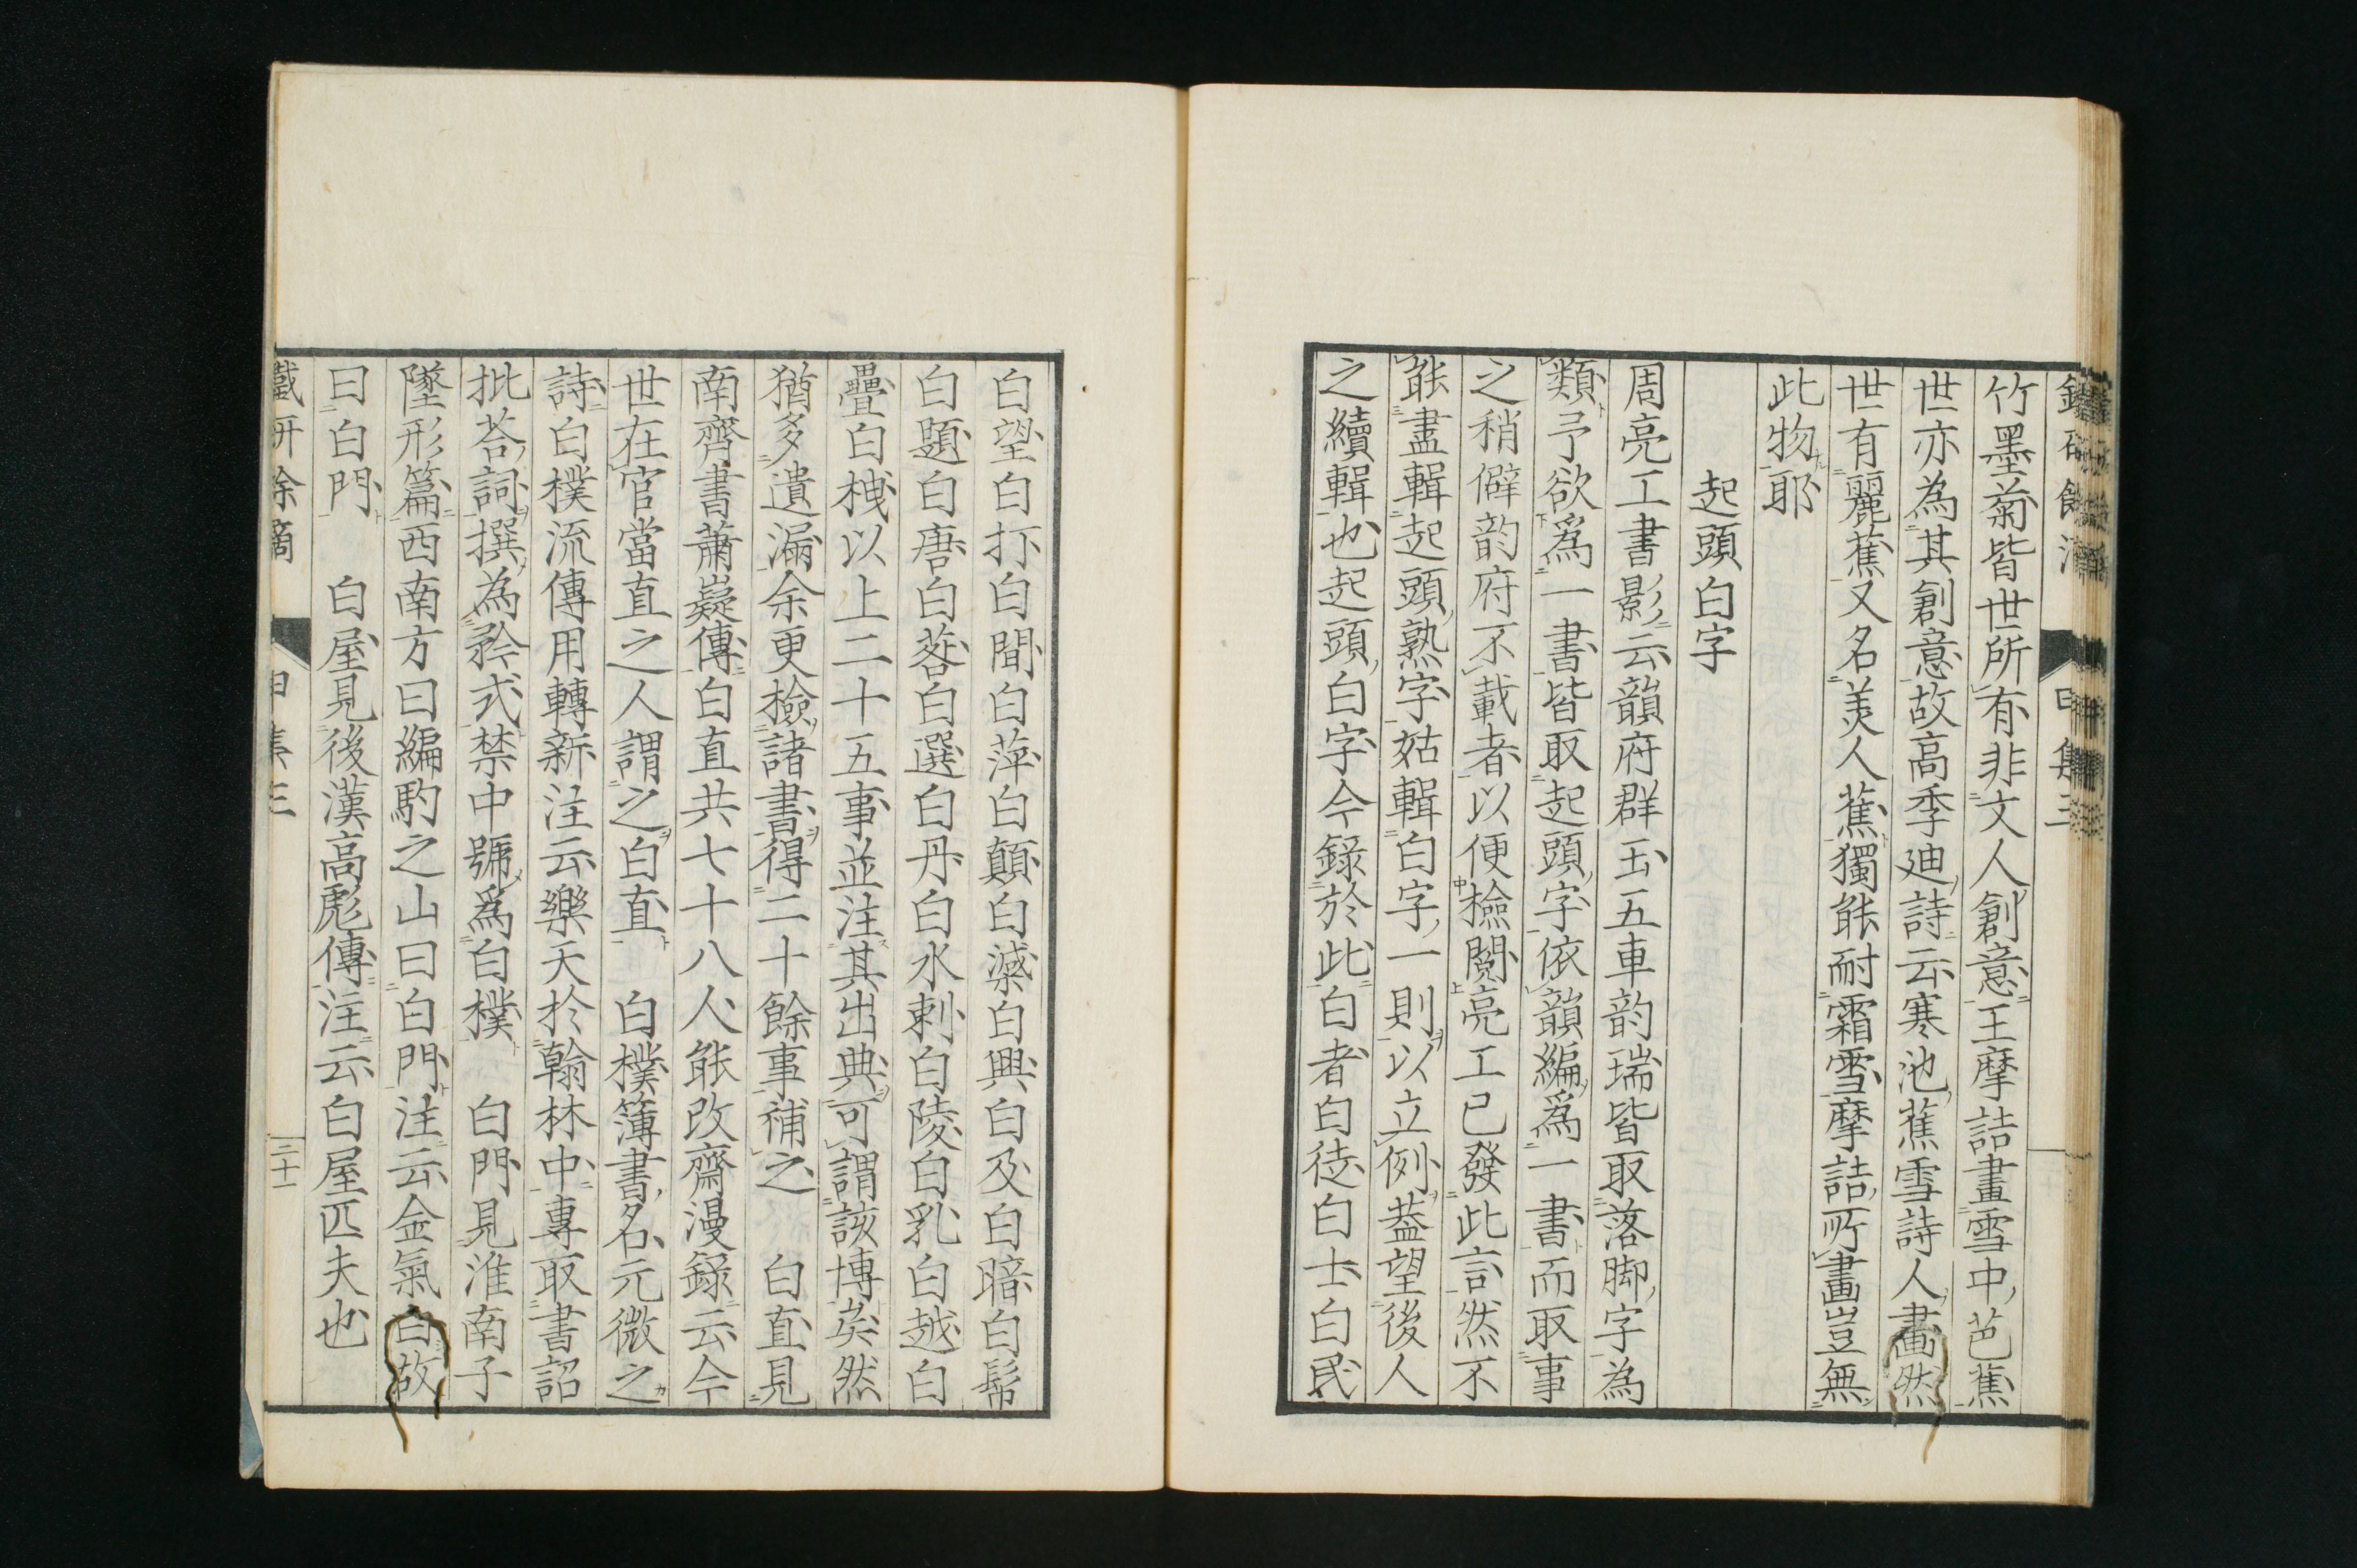 竹墨菊皆世所有非文人創意王摩詰畫雪中芭蕉
世亦為其創意故高季迪詩云寒池蕉雪詩人畫然
世有麗蕉又名美人蕉獨能耐霜雪摩詰所畫豈無
此物耶
起頭白字
周亮工書影云韻府群玉五車韵瑞皆取落脚字為
類予欲爲一書皆取起頭字依韻編爲一書而取事
之稍僻韵府不載者以便檢閱亮工已發此言然不
能盡輯起頭熟字姑輯白字一則以立例葢望後人
之續輯也起頭白字今錄於此白者白徒白士白民
白望白打白間白萍白顛白滅白興白及白暗白髻
白題白唐白莶白選白丹白水剌白陵白乳白越白
疊白栧以上二十五事並注其出典可謂該博矣然
猶多遺漏余更檢諸書得二十餘事補之 白直見
南齊書蕭嶷傳白直共七十八人能改齋漫錄云今
世在官當直之人謂之白直 白樸簿書名元微之
詩白樸流傳用轉新注云樂天於翰林中專取書詔
批荅詞撰為矜式禁中號爲白樸 白門見淮南子
墬形篇西南方曰編駒之山曰白門注云金氣白故
曰白門 白屋見後漢高彪傳注云白屋匹夫也
鐵研余滴 甲集三 三十一